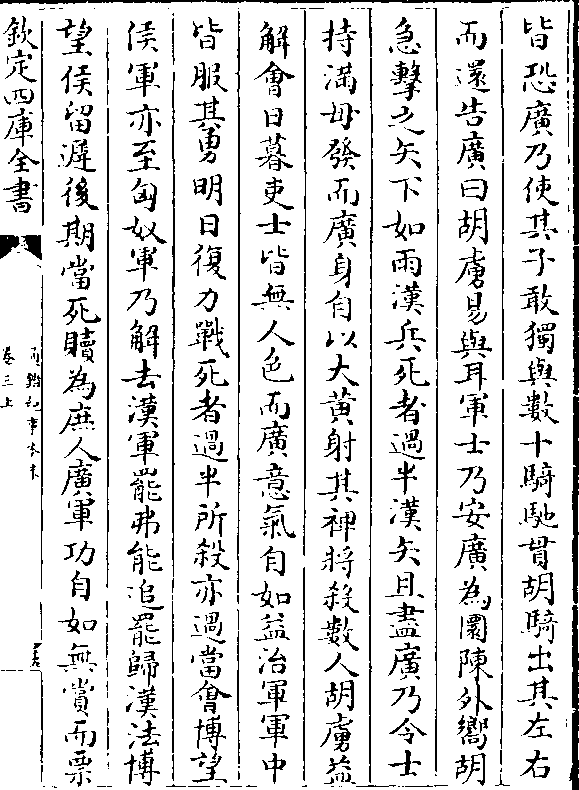 皆恐廣乃使其子敢獨與數十騎馳貫胡騎出其左右
而還告廣曰胡虜易與耳軍士乃安廣為圜陳外嚮胡
急擊之矢下如雨漢兵死者過半漢矢且盡廣乃令士
持滿毋發而廣身自以大黃射其裨將殺數人胡虜益
解會日暮吏士皆無人色而廣意氣自如益治軍軍中
皆服其勇明日復力戰死者過半所殺亦過當會博望
侯軍亦至匈奴軍乃解去漢軍罷弗能追罷歸漢法博
望侯留遲後期當死贖為庶人廣軍功自如無賞而票
欽定四庫全書
通鑑紀事本末
卷三上